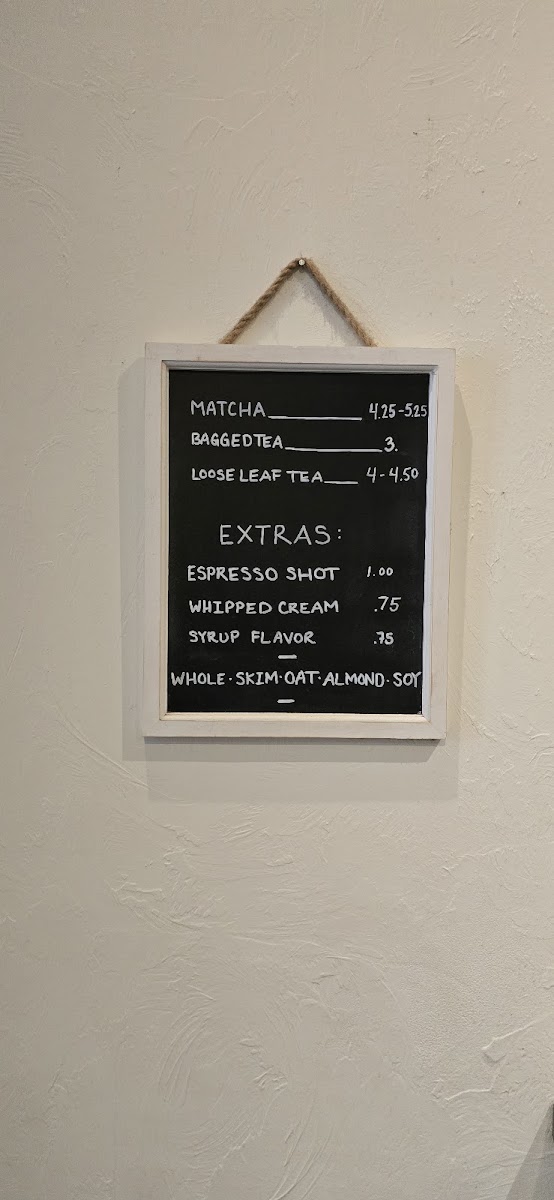 MATCHA 4.25-5.25
BAGGED TEA 3.
LOOSE LEAF TEA 4-4.50
EXTRAS:
ESPRESSO SHOT 1.00
WHIPPED CREAM .75
SYRUP FLAVOR .75
WHOLE·SKIM·OAT·ALMOND·SOY